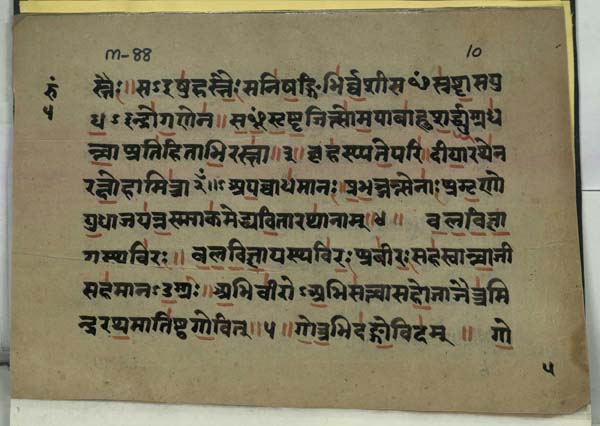 M-88 10
रुं स्तैः॥ सऽइषुहस्तैः सनिषङ्गिभिर्व्वशीस ꣳ स्रष्टा सयु
५ धऽइन्द्रोगणेन ॥ सꣳसृष्टजित्सोमपाबाहुशर्द्ध्युग्रध
न्न्वा प्रतिहिताभिरस्ता ॥३॥ बृहस्पतेपरि दीयारथेन
रक्षोहामित्राँ२॥ऽअपबाधमानः॥ प्रभञ्जन्त्सेनाः प्रमृणो
युधाजयन्नस्माकमेद्ध्यवितारथानाम् ॥४॥ बलविज्ञा
यस्थविरः॥ बलविज्ञायस्थविरः प्रवीरः सहस्वान्वाजी
सहमानऽउग्रः॥ अभिवीरोऽअभिसत्त्वासहोजाजैत्रमि
न्द्ररथमातिष्ठगोवित् ॥५॥ गोत्रभिदङ्गोविदम् ॥ गो
५